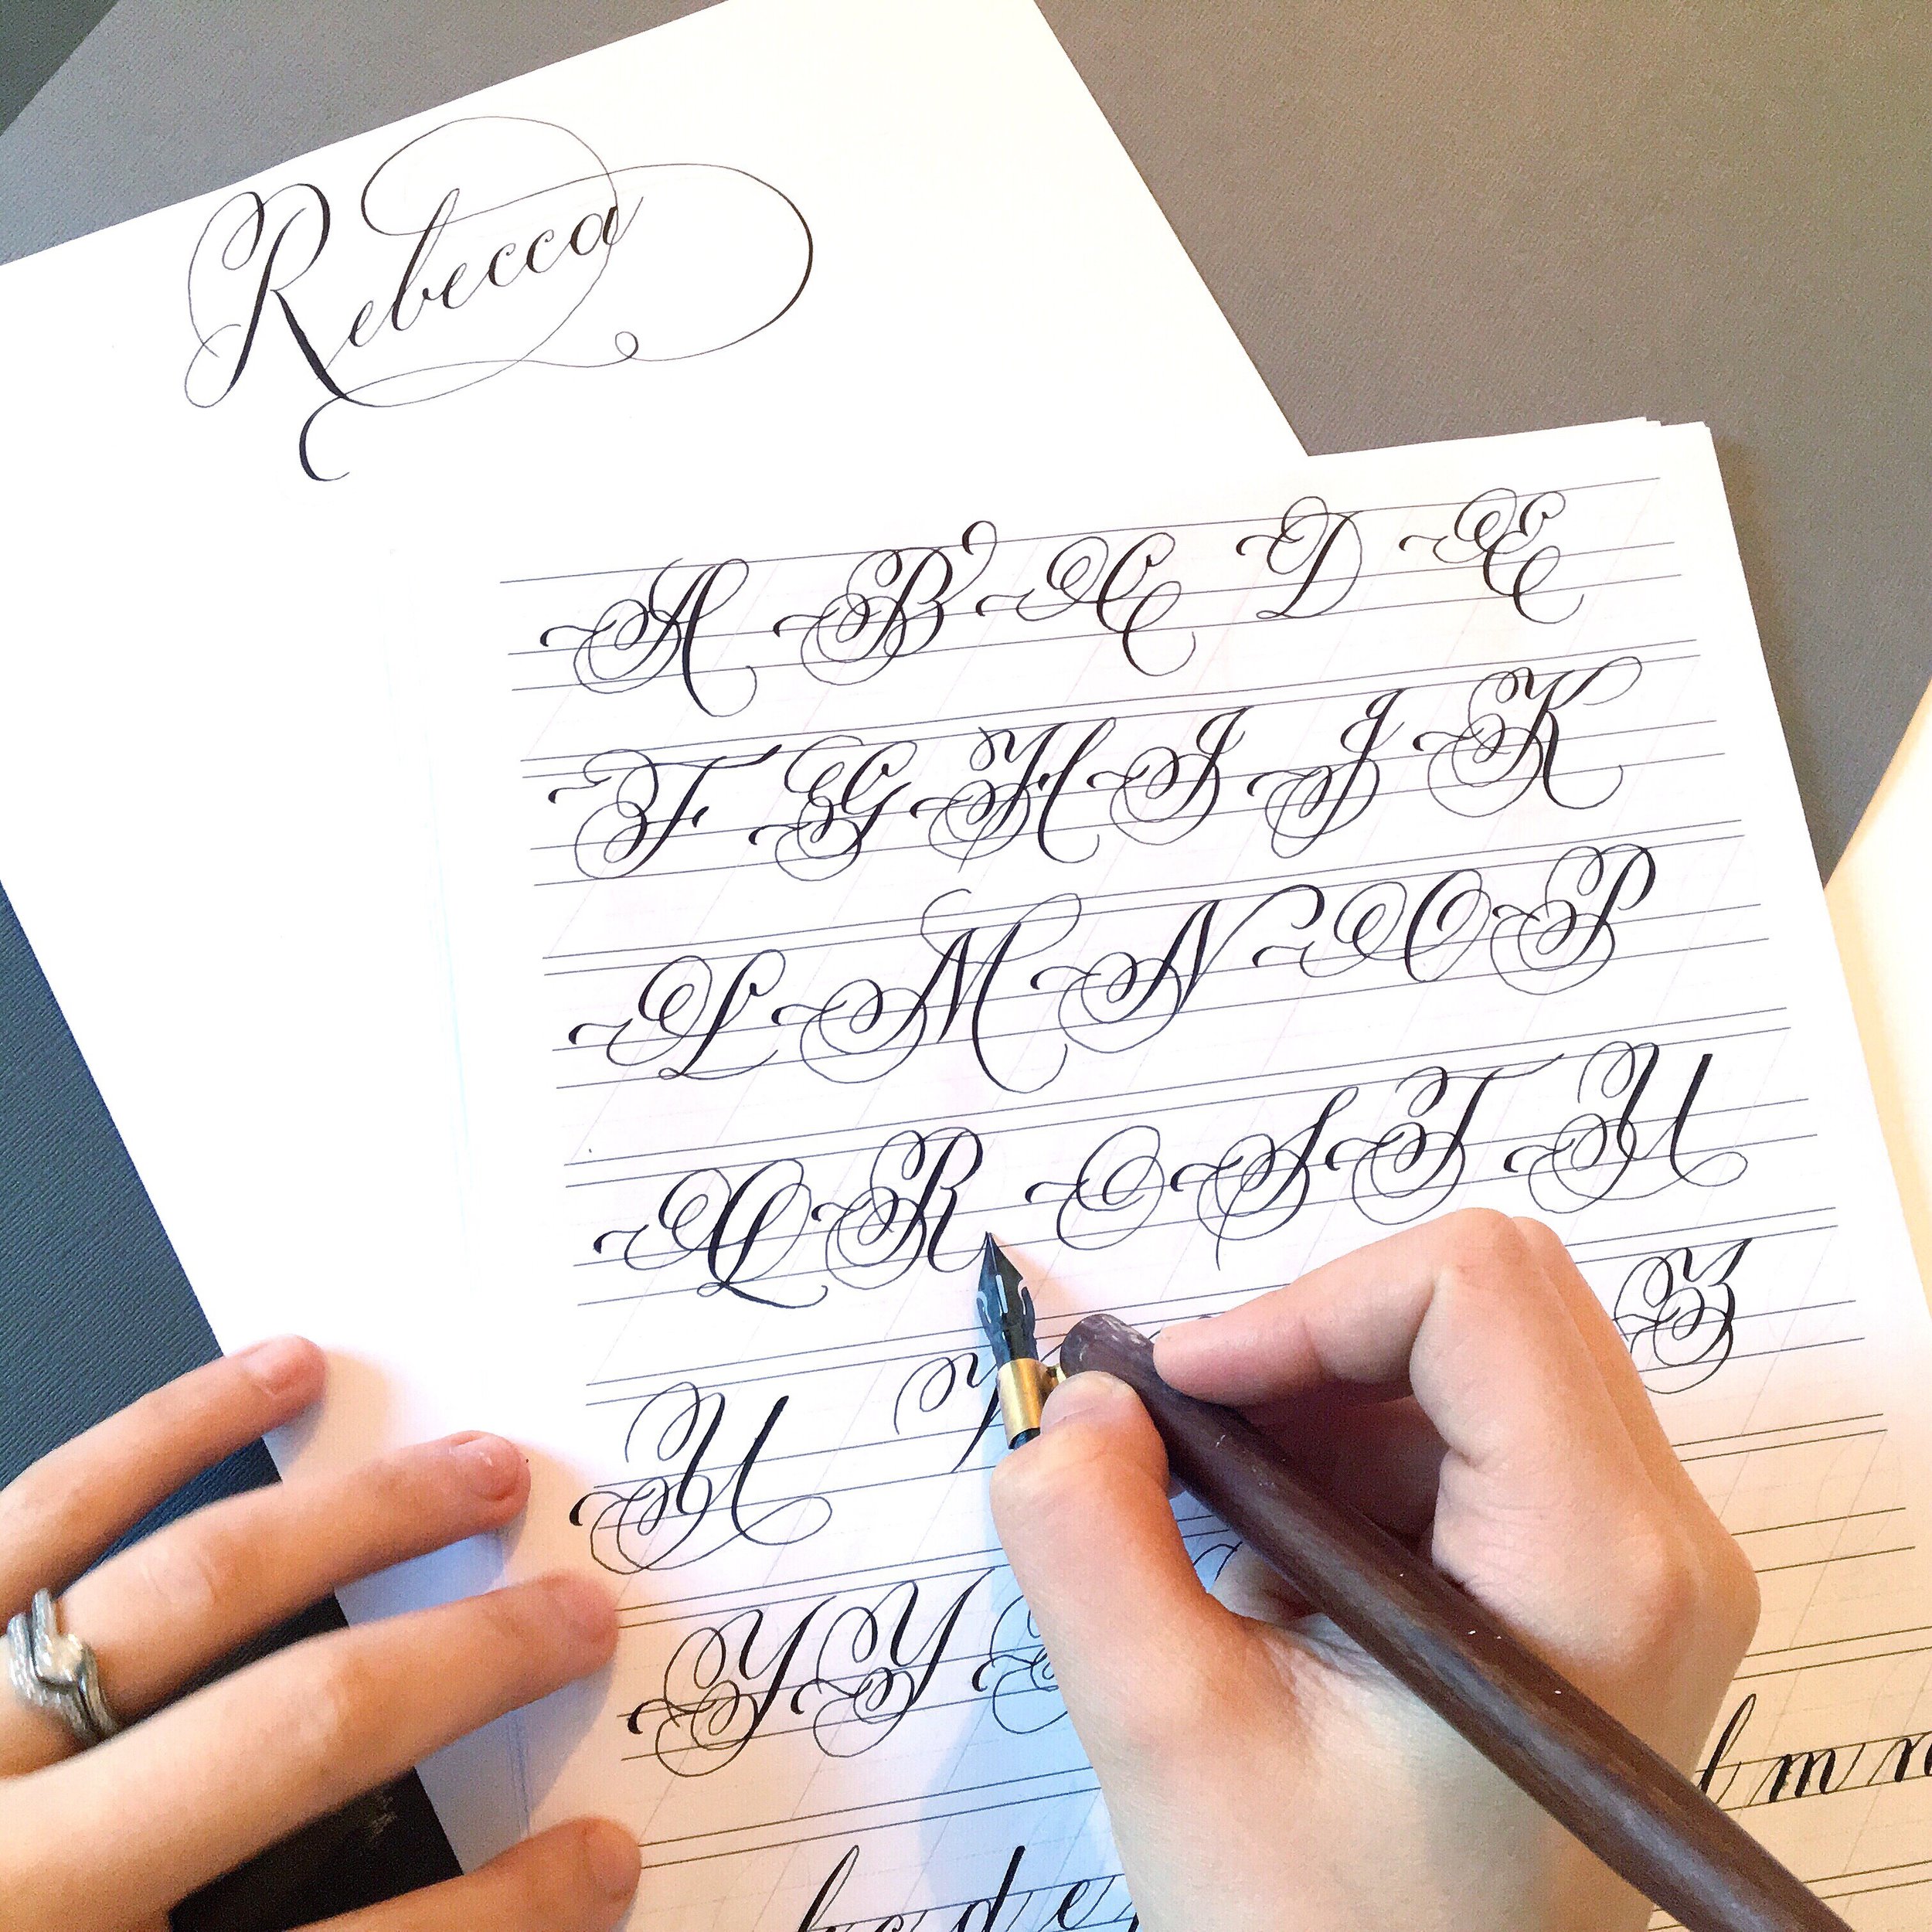 Rebecca
A B C D E
F G H I J K
L M N O P
Q R S T U
U Z
Y Y
l m n
b c d e